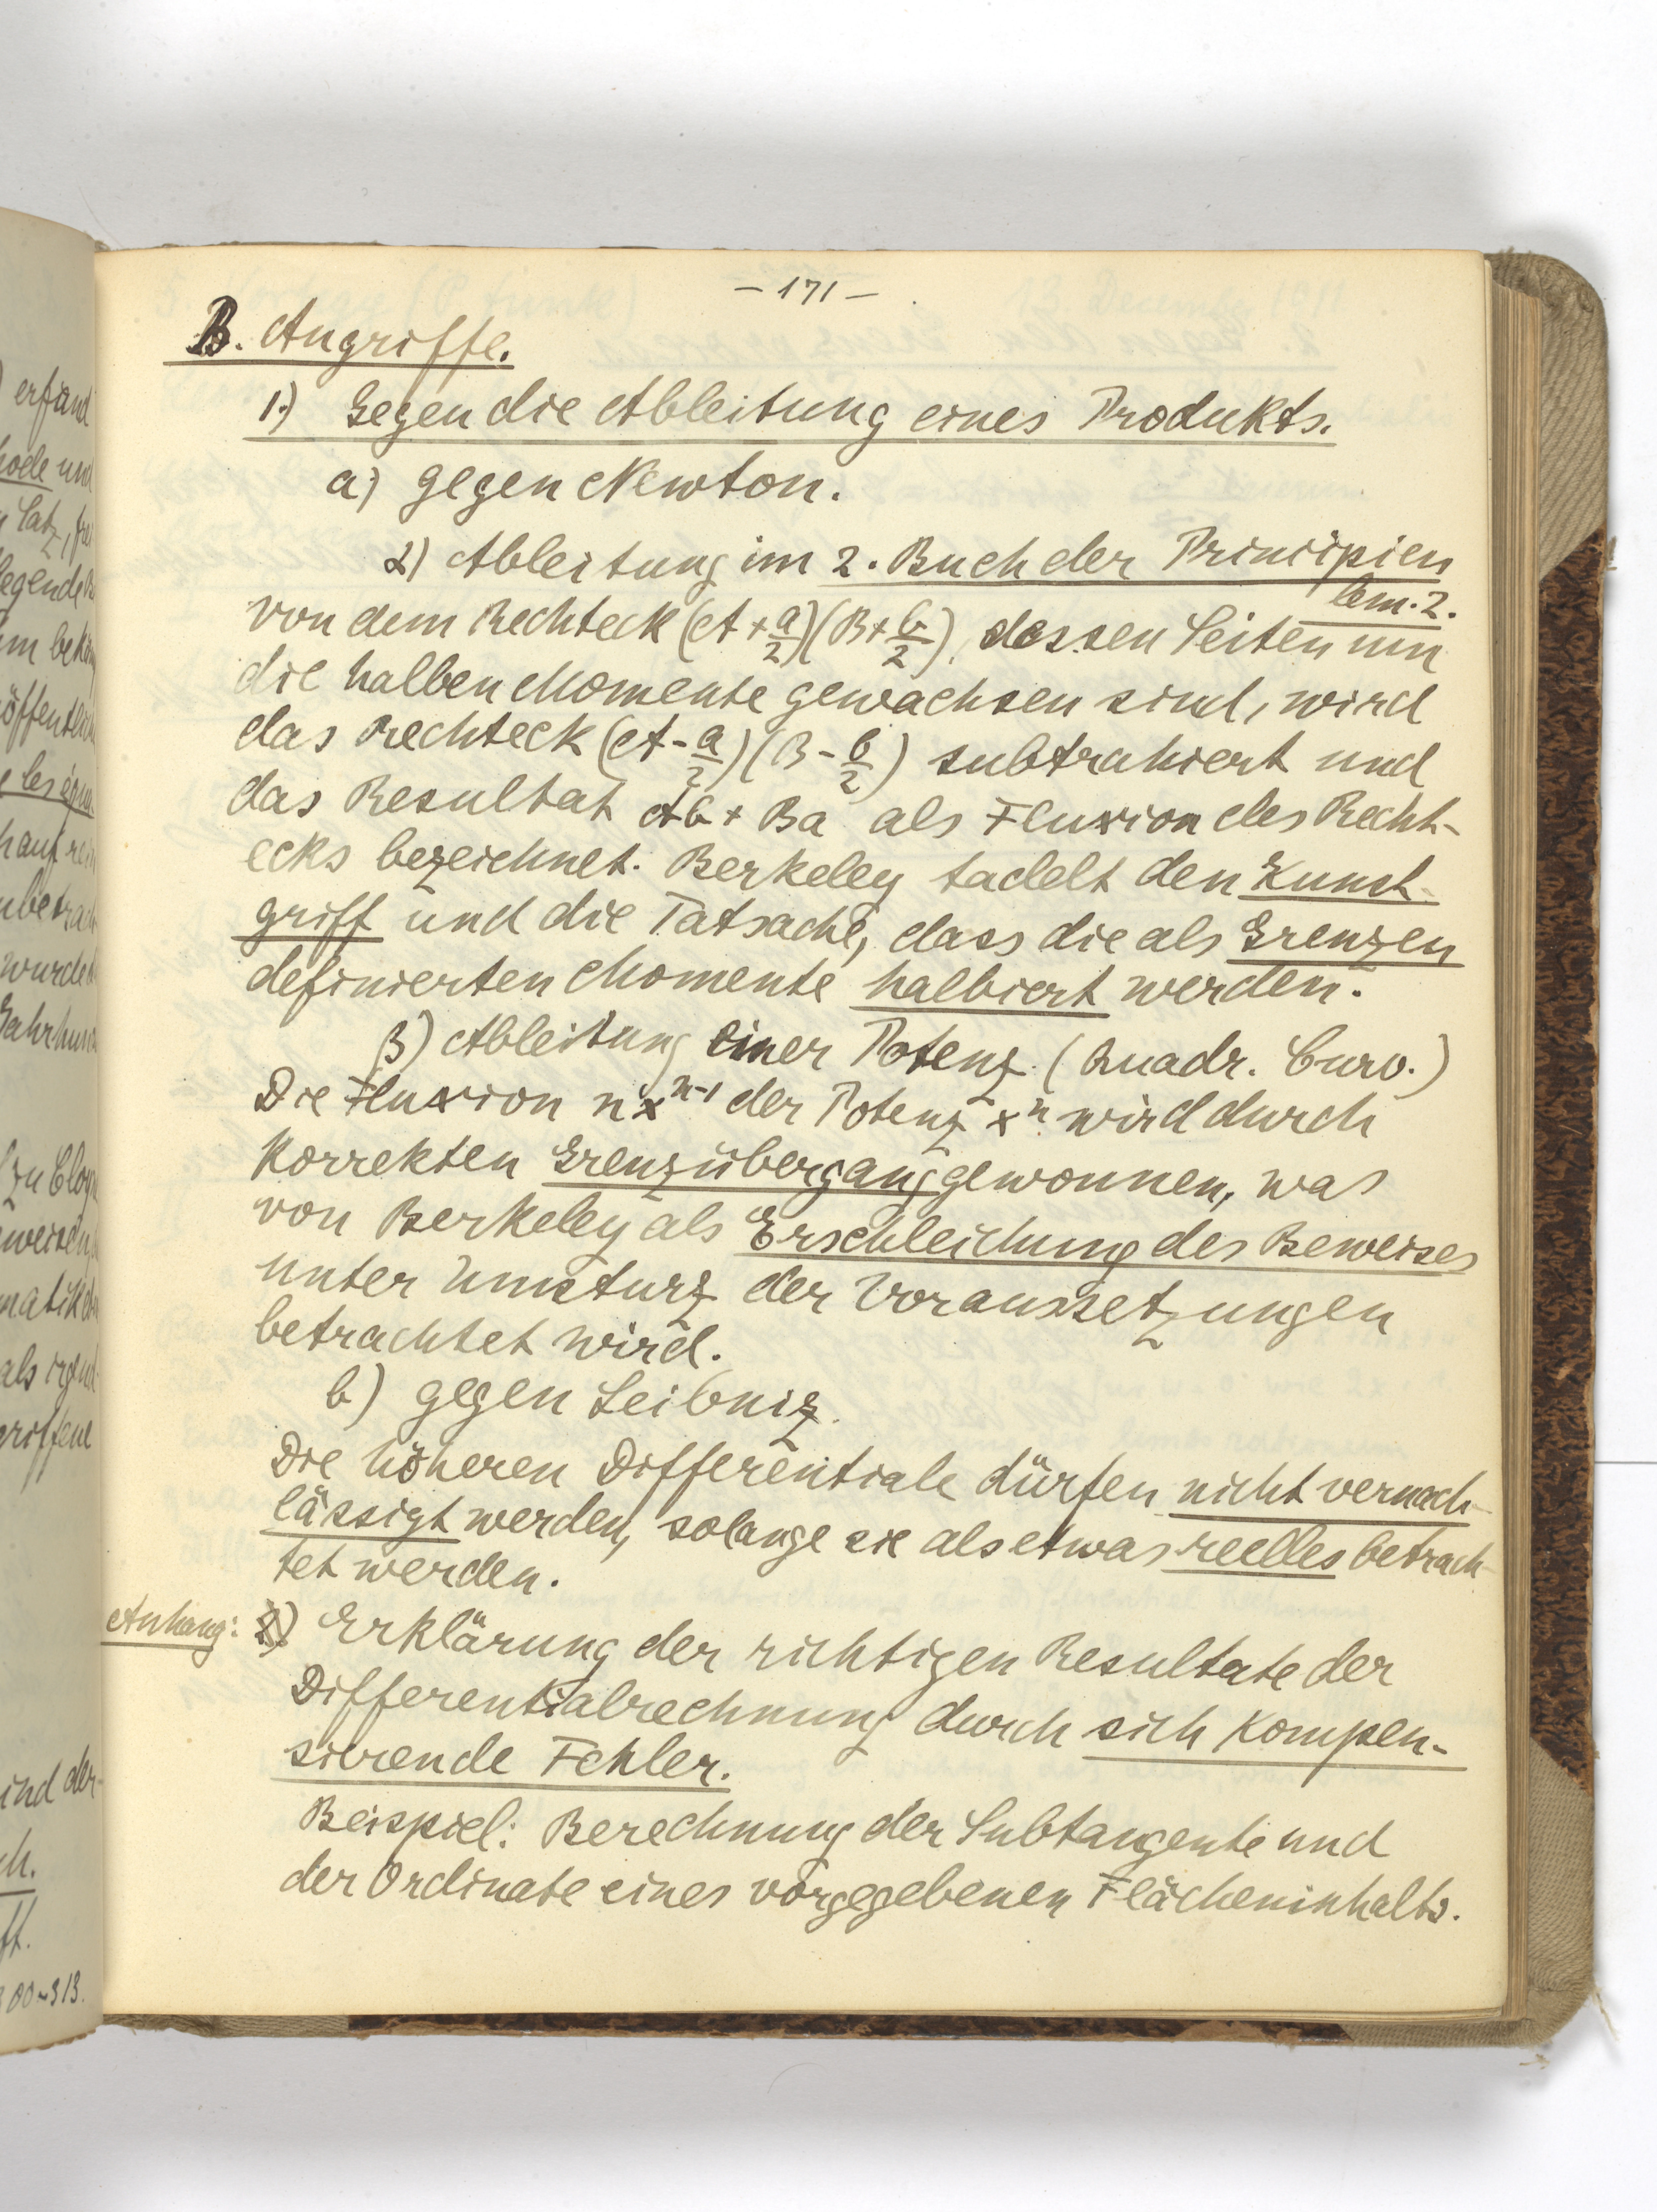 – 171 –
B. Angriffe.
1.) Gegen die Ableitung eines Produkts.
a) gegen Newton.
α) Ableitung im 2. Buch der Principien
lem. 2.
von dem Rechteck (A + a/2)(B + b/2), dessen Seiten um
die halben Momente gewachsen sind, wird
das Rechteck (A - a/2)(B - b/2) subtrahiert und
das Resultat Ab + Ba als Fluxion des Recht-
ecks bezeichnet. Berkeley tadelt den Kunst-
griff und die Tatsache, dass die als Grenzen
definierten Momente halbiert werden.
β) Ableitung einer Potenz (Quadr. Curv.)
Die Fluxion nxⁿ⁻¹ der Potenz xⁿ wird durch
korrekten Grenzübergang gewonnen, was
von Berkeley als Erschleichung des Beweises
unter Umsturz der Voraussetzungen
betrachtet wird.
b) gegen Leibniz.
Die höheren Differentiale dürfen nicht vernach-
lässigt werden, solange sie als etwas reelles betrach-
tet werden.
Anhang: 2) Erklärung der richtigen Resultate der
Differentialrechnung durch sich kompen-
sierende Fehler.
Beispiel: Berechnung der Subtangente und
der Ordinate eines vorgegebenen Flächeninhalts.